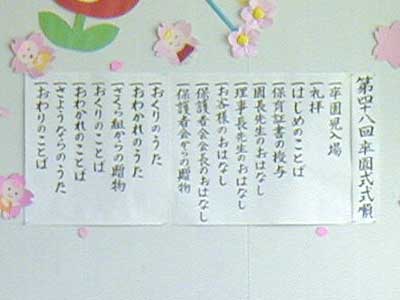 第四十八回卒園式式順
一卒園児入場
一礼拝
一はじめのことば
一保育証書の授与
一園長先生のおはなし
一理事長先生のおはなし
一お客様のおはなし
一保護者会会長のおはなし
一保護者会からの贈物
一おくりのうた
一おわかれのうた
一さくら組からの贈物
一おくりのことば
一おわかれのことば
一さようならのうた
一おわりのことば